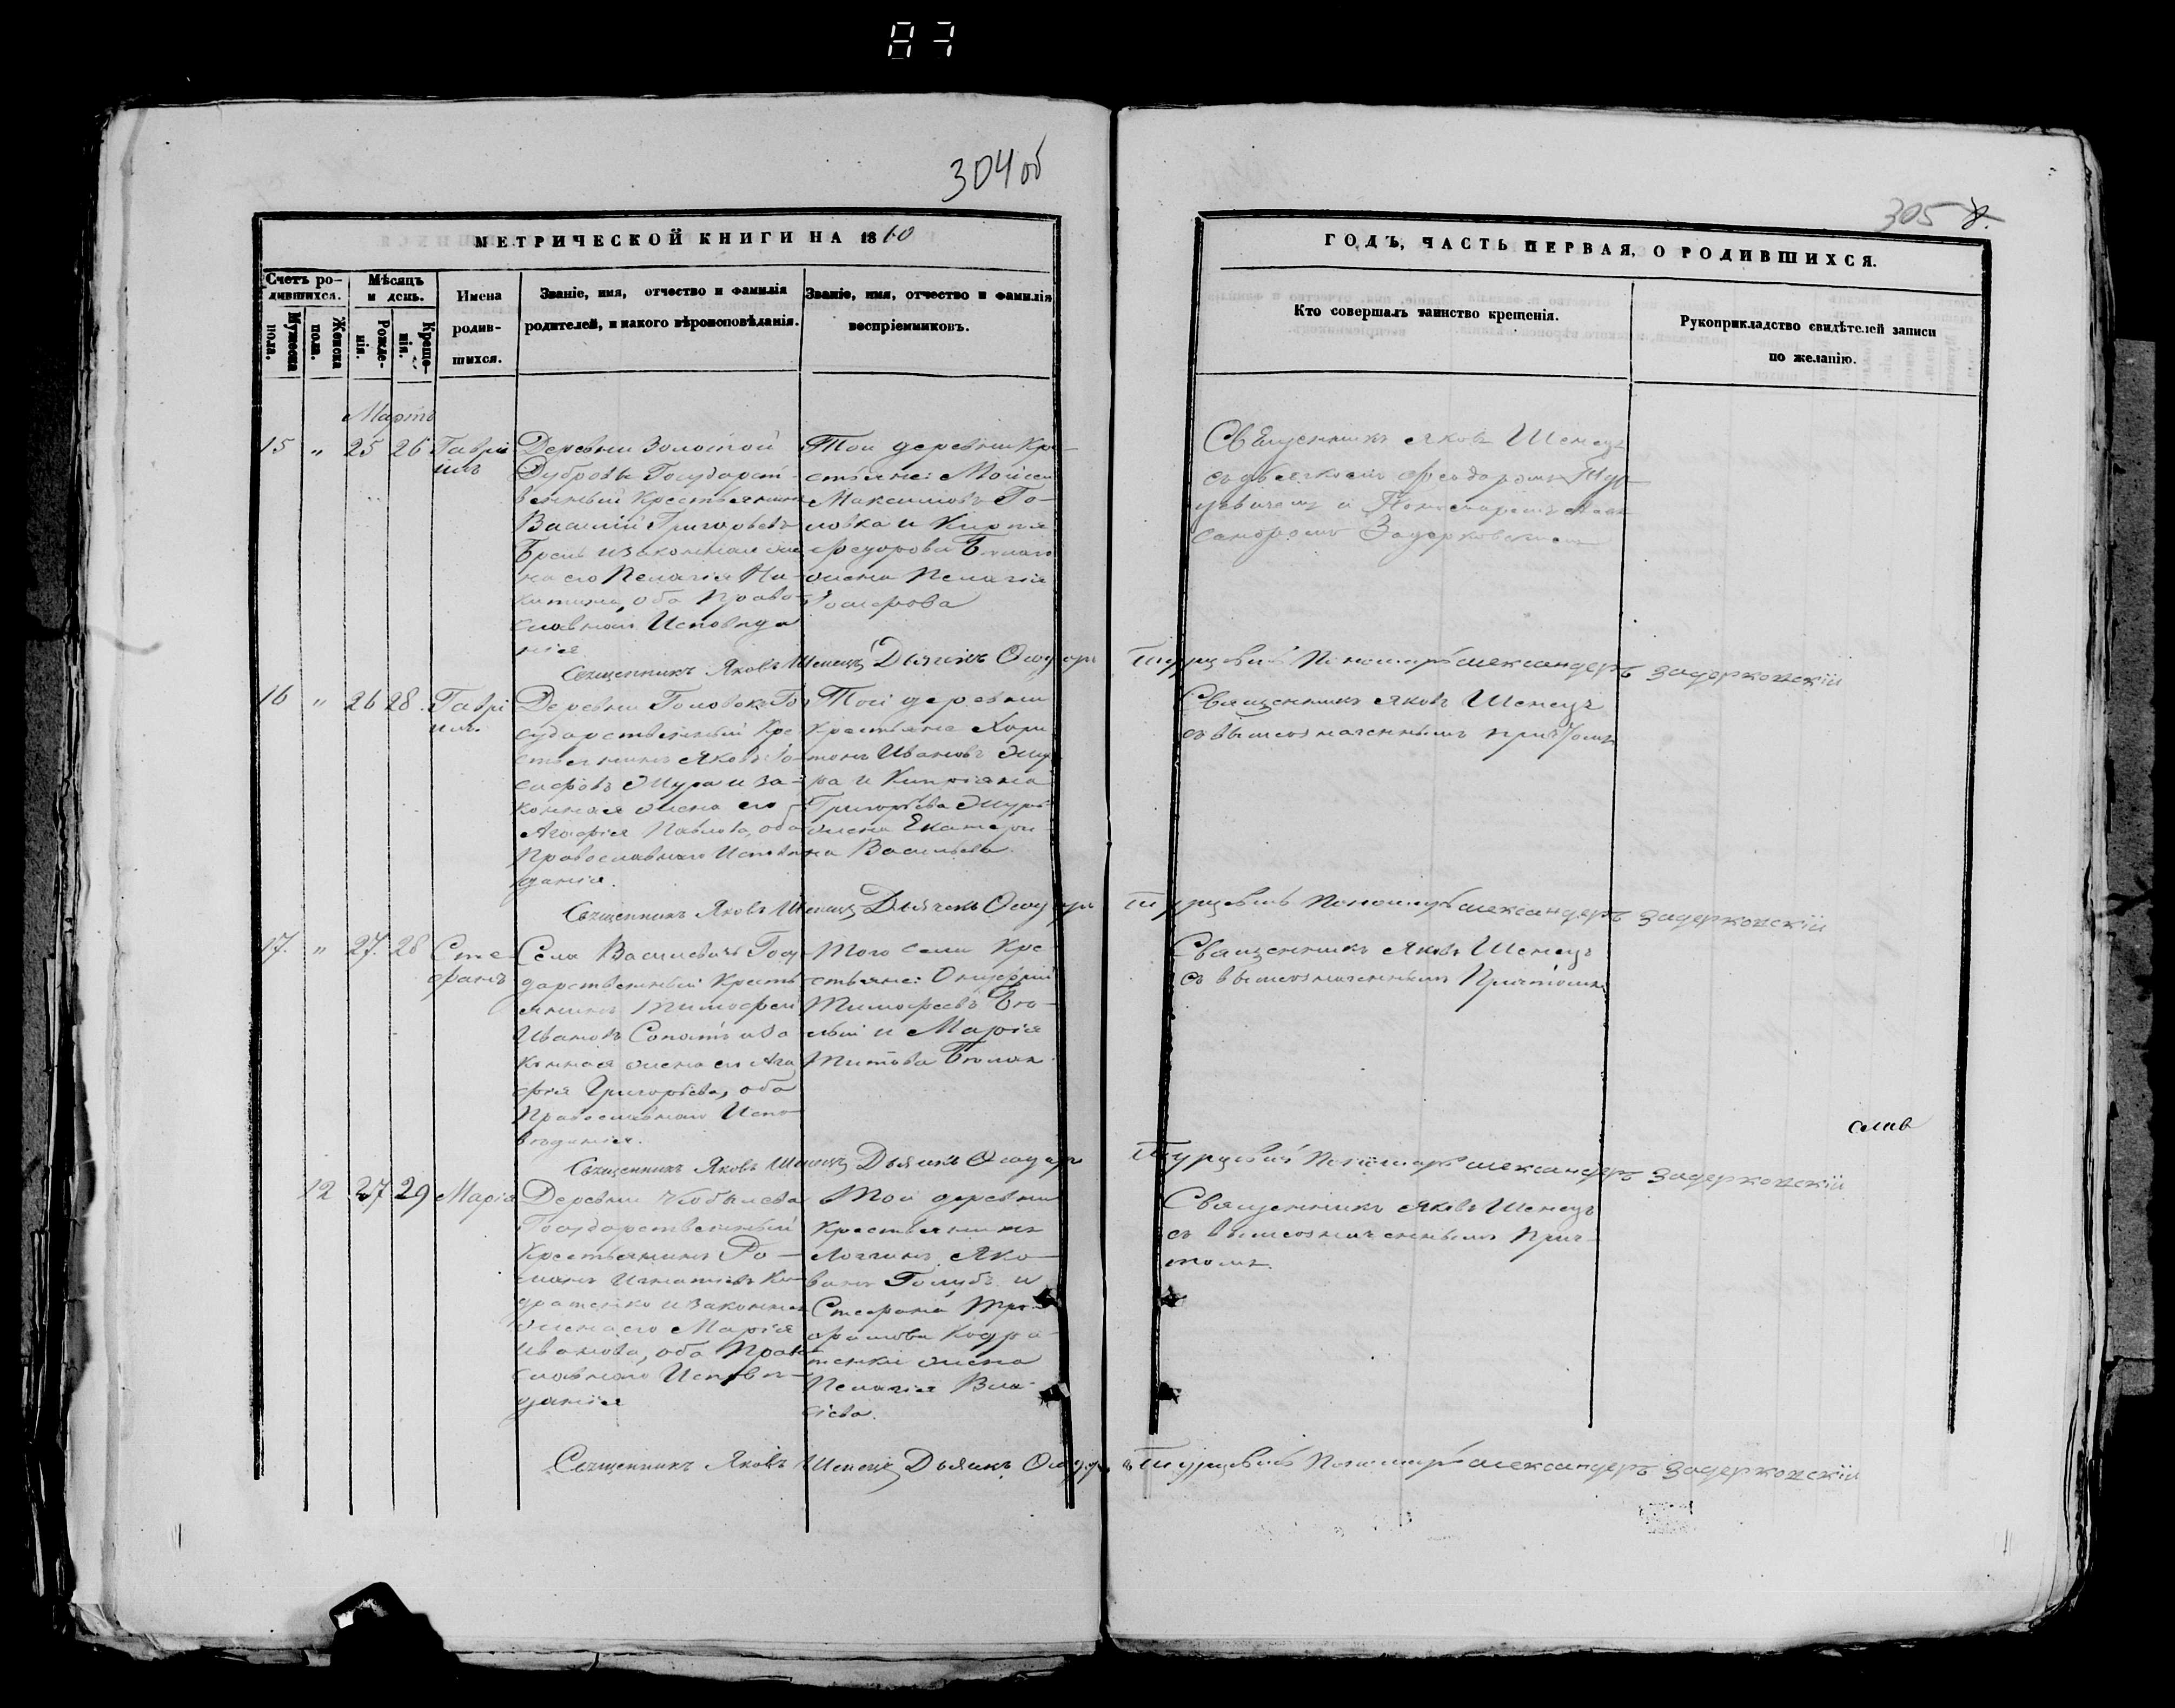 87
304 об
305
МЕТРИЧЕСКОЙ КНИГИ НА 1860
ГОДЪ, ЧАСТЬ ПЕРВАЯ, О РОДИВШИХСЯ.
Счетъ ро-
дившихся.
Мужеска
пола.
Женска
пола.
Мѣсяцъ
и день.
Рожде-
нія.
Креще-
нія.
Имена
родив-
шихся.
Званіе, имя, отчество и фамилія
родителей, и какого вѣроисповѣданія.
Званіе, имя, отчество и фамилія
воспріемниковъ.
Кто совершалъ таинство крещенія.
Рукоприкладство свидѣтелей записи
по желанію.
Мартъ
15 " 25 26 Гаврі
илъ
Деревни Золотой
Дубровы Государст-
венный Крестьянинъ
Василій Григорьевъ
и законная же
на его Пелагія Ни-
китина, оба Право-
славнаго Исповѣда
нія
Той деревни Кре-
стьяне: Моисей
Максимовъ Го-
ловка и
Федорова
жена Пелагія
Священникъ Яковъ Шенецъ
съ дьячкомъ Феодоромъ Тур-
цевичемъ и Пономаремъ Алек
сандромъ Задерковскимъ
Священникъ Яковъ Шенецъ Дьячекъ Ѳеодоръ Турцевичъ Пономарь Александеръ Задерковскій
16 " 26 28 Гаврі
илъ
Деревни Головокъ Го
сударственный Кре
стьянинъ Яковъ Іо-
сифовъ Жура и за-
конная жена его
Агафія Павлова, оба
Православнаго Исповѣ
данія.
Той деревни
Крестьяне Хари
тонъ Ивановъ Жу
ра и Кипріана
Григорьева Журы
жена Екатери-
на Васильева
Священникъ Яковъ Шенецъ
съ вышеозначеннымъ причтомъ
Священникъ Яковъ Шенецъ Дьячекъ Ѳеодоръ Турцевичъ Пономарь Александеръ Задерковскій
17. " 27. 28 Сте
фанъ
Села Василевичъ Госу
дарственный Кресть
янинъ Тимофей
Ивановъ Сопотъ и за
конная жена его Ага
фія Григорьева, оба
Православнаго Испо-
вѣданія.
Того села Кре-
стьяне: Онуфрій
Тимофеевъ Бѣ-
лый и Марія
Титова
Священникъ Яковъ Шенецъ
съ вышеозначеннымъ Причтомъ
Священникъ Яковъ Шенецъ Дьячекъ Ѳеодоръ Турцевичъ Пономарь Александеръ Задерковскій
12 27 29 Марія
Деревни
Государственный
Крестьянинъ Ро-
манъ Игнатьевъ Ко
дратенко и законная
жена его Марія
Иванова, оба Право
славнаго Исповѣ-
данія
Той деревни
Крестьянинъ
Логгинъ Яко-
Голубъ и
Стефана Тро-
фимова Кодра-
тенки жена
Пелагія Вла-
сіева.
Священникъ Яковъ Шенецъ
съ вышеозначеннымъ прич-
томъ.
Священникъ Яковъ Шенецъ Дьячекъ Ѳеодоръ Турцевичъ Пономарь Александеръ Задерковскій